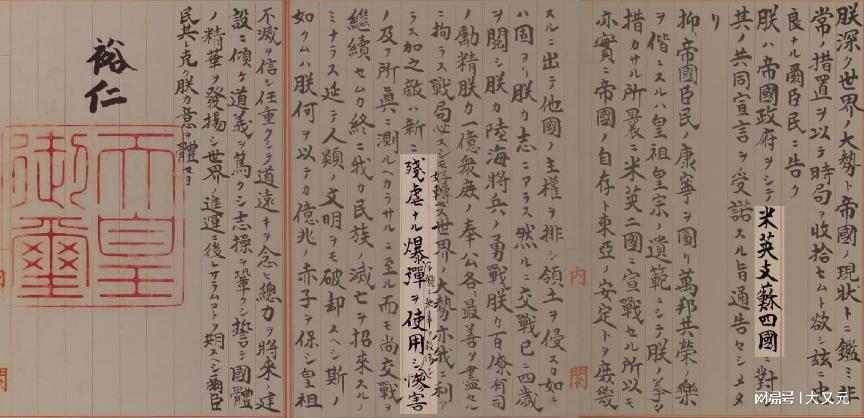 朕深ク世界ノ大勢ト帝國ノ現狀トニ鑑ミ非
常ノ措置ヲ以テ時局ヲ收拾セムト欲シ茲ニ忠
良ナル爾臣民ニ告ク
朕ハ帝國政府ヲシテ米英支蘇四國ニ對
其ノ共同宣言ヲ受諾スル旨通告セシメタ
リ
抑〻帝國臣民ノ康寧ヲ圖リ萬邦共榮ノ樂
ヲ偕ニスルハ皇祖皇宗ノ遺範ニシテ朕ノ拳〻
措カサル所曩ニ米英二國ニ宣戰セル所以モ
亦實ニ帝國ノ自存ト東亞ノ安定トヲ庶幾
内閣
スルニ出テ他國ノ主權ヲ排シ領土ヲ侵スカ如キ
ハ固ヨリ朕カ志ニアラス然ルニ交戰已ニ四歲
ヲ閱シ朕カ陸海將兵ノ勇戰朕カ百僚有司
ノ勵精朕カ一億衆庶ノ奉公各最善ヲ盡セル
ニ拘ラス戰局必スシモ好轉セス世界ノ大勢亦我ニ利ア
ラス加之敵ハ新ニ殘虐ナル爆彈ヲ使用シ慘害
ノ及フ所眞ニ測ルヘカラサルニ至ル而モ尚交戰ヲ
繼續セムカ終ニ我カ民族ノ滅亡ヲ招來スルノ
ミナラス延テ人類ノ文明ヲモ破却スヘシ斯ノ
如クムハ朕何ヲ以テカ億兆ノ赤子ヲ保シ皇祖
不滅ヲ信シ任重クシテ道遠キヲ念ヒ總力ヲ將來ノ建
設ニ傾ケ道義ヲ篤クシ志操ヲ鞏クシ誓テ國體
ノ精華ヲ發揚シ世界ノ進運ニ後レサラムコトヲ期スヘシ爾臣
民其レ克ク朕カ意ヲ體セヨ
裕仁
天皇
御璽
内閣
网易号 | 大文元